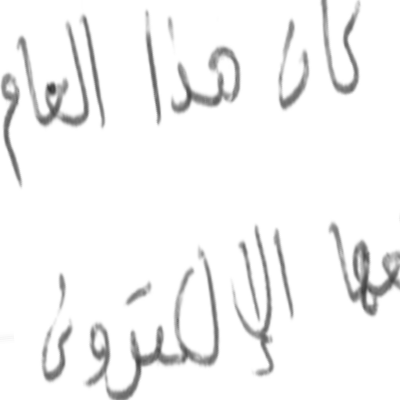 كان هذا العام
الإلكتروني